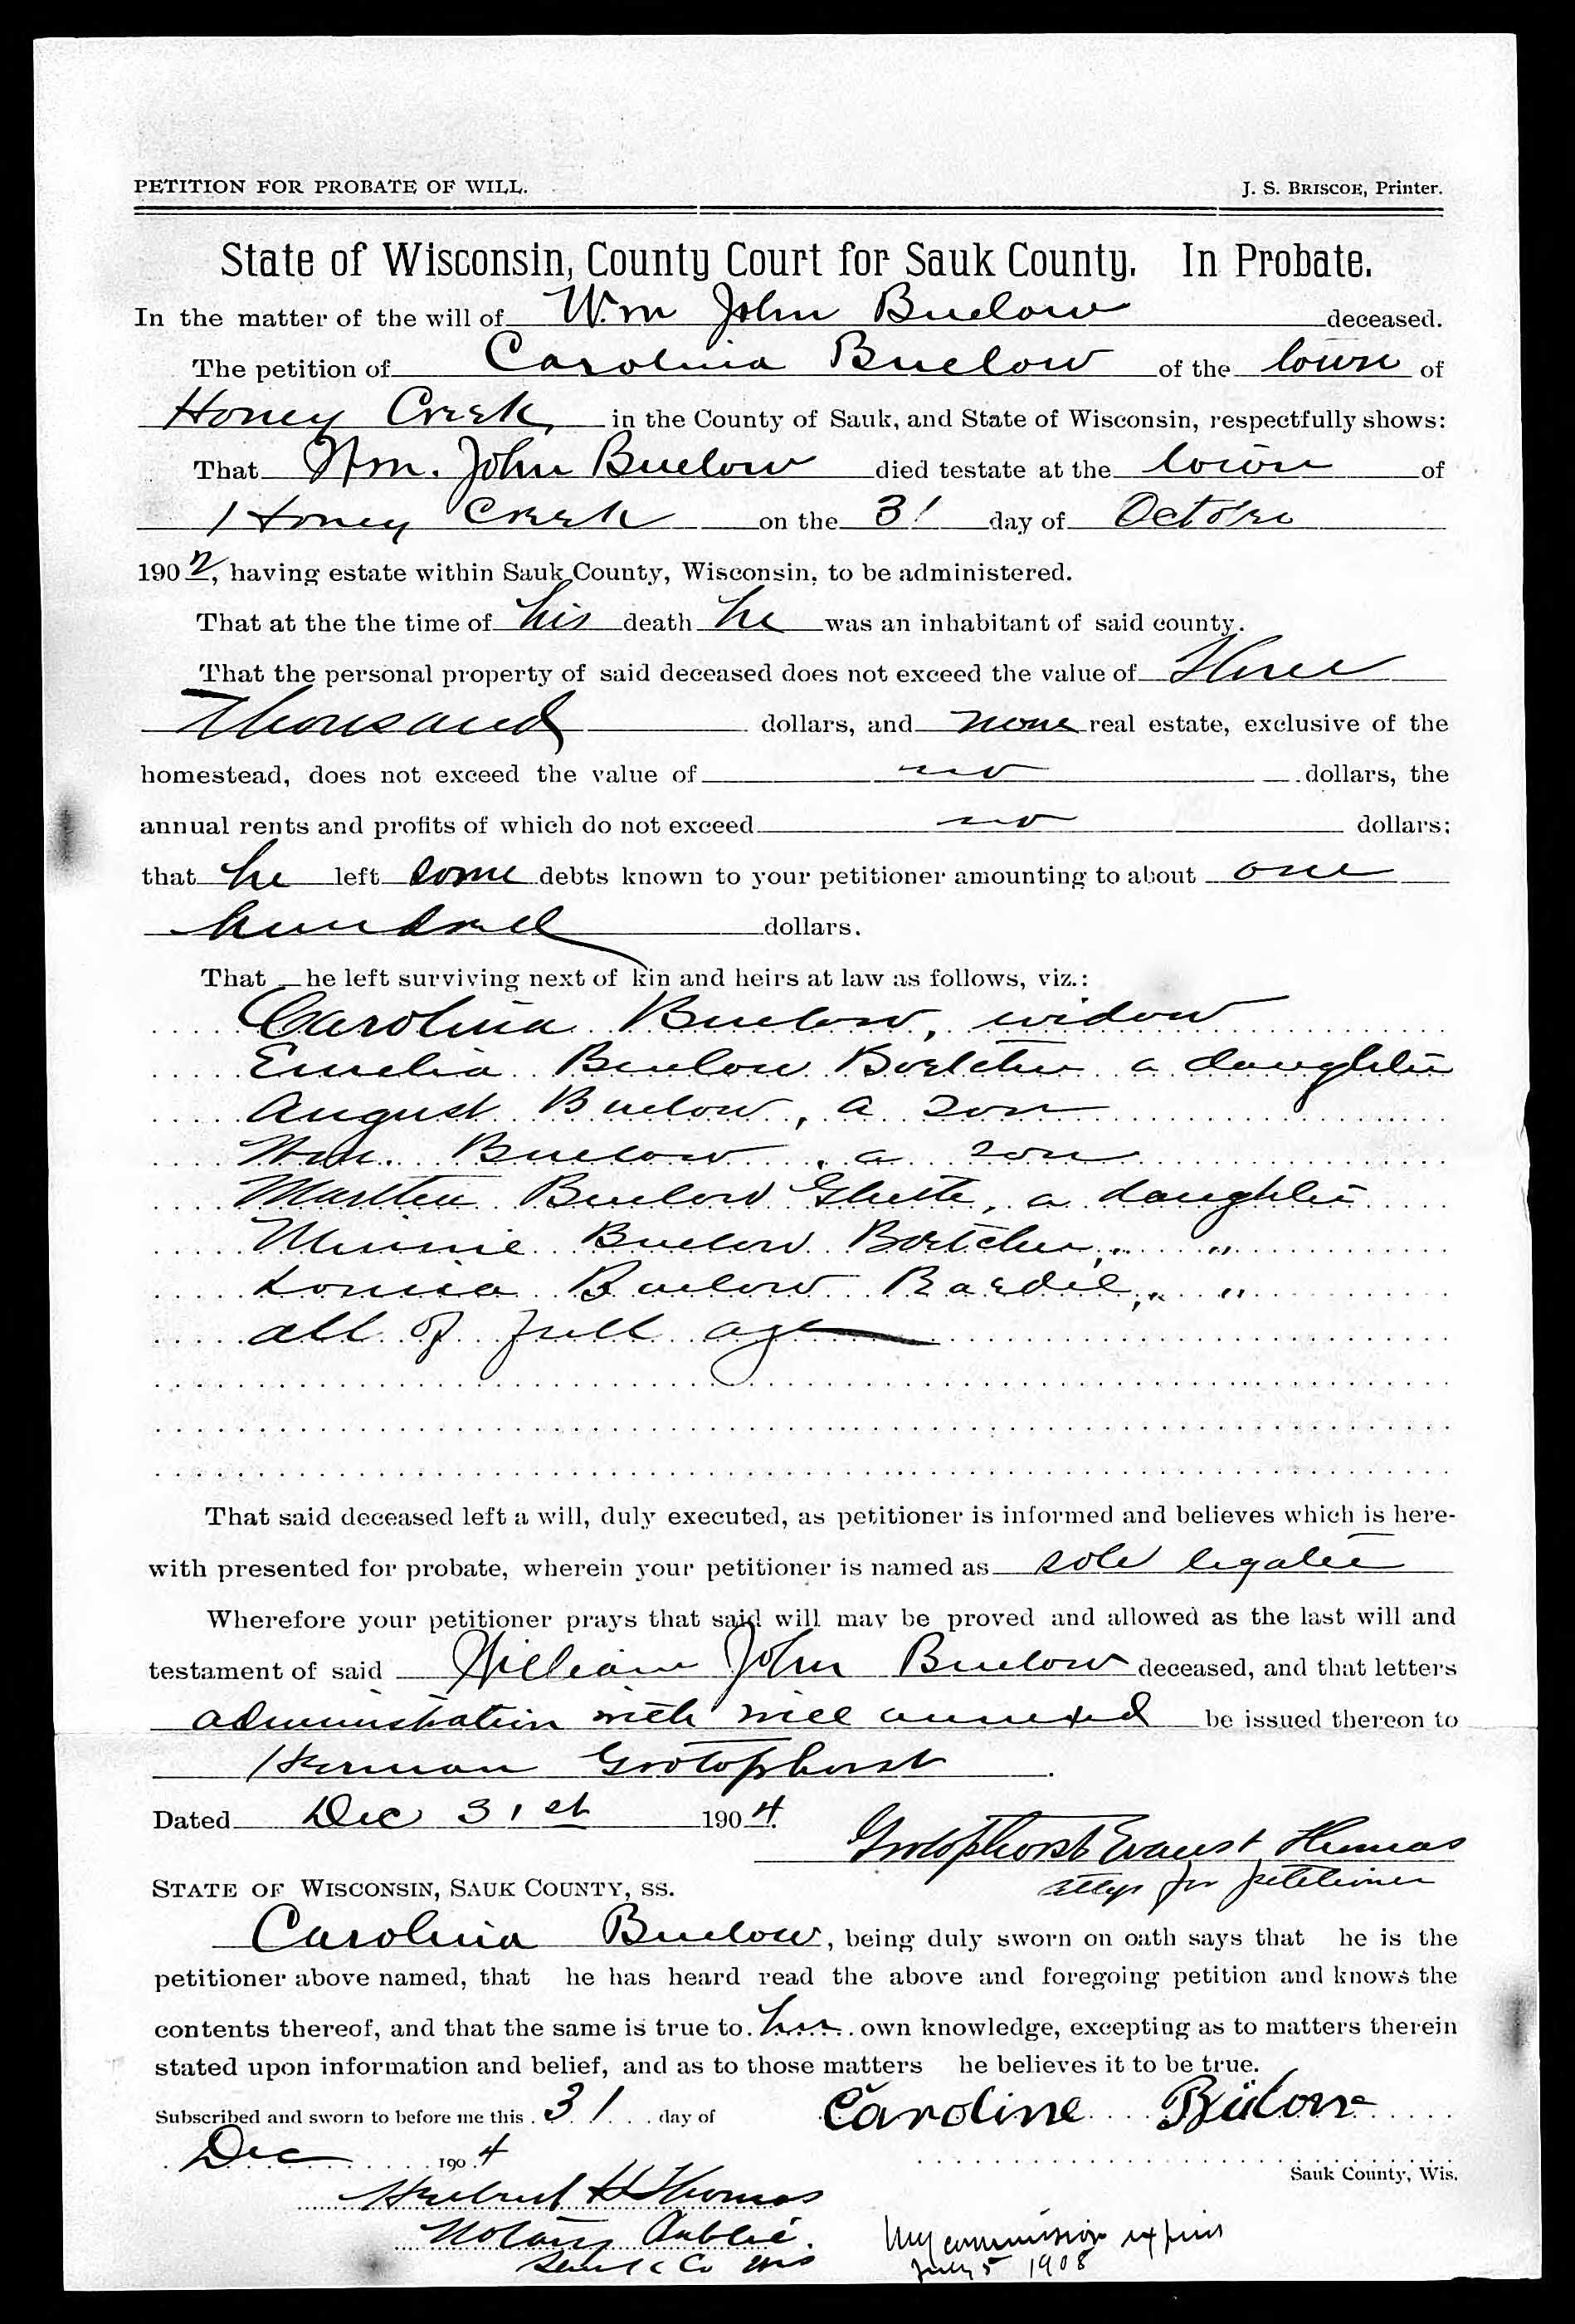 PETITION FOR PROBATE OF WILL. J. S. BRISCOE, Printer.
State of Wisconsin, County Court for Sauk County. In Probate.
In the matter of the will of Wm John Buelow deceased.
The petition of Carolina Buelow of the town of
Honey Creek, in the County of Sauk, and State of Wisconsin, respectfully shows:
That Wm. John Buelow died testate at the town of
Honey Creek on the 31 day of October
1902, having estate within Sauk County, Wisconsin, to be administered.
That at the the time of his death he was an inhabitant of said county.
That the personal property of said deceased does not exceed the value of Three
Thousand dollars, and none real estate, exclusive of the
homestead, does not exceed the value of no dollars, the
annual rents and profits of which do not exceed no dollars;
that he left some debts known to your petitioner amounting to about one
hundred dollars.
That he left surviving next of kin and heirs at law as follows, viz.:
Carolina Buelow, widow
Emelia Buelow Boetcher a daughter
August Buelow, a son
Wm. Buelow, a son
Martha Buelow, a daughter
Minnie Buelow Boetcher, " "
Louisa Buelow " "
all of full age
That said deceased left a will, duly executed, as petitioner is informed and believes which is here-
with presented for probate, wherein your petitioner is named as sole legatee
Wherefore your petitioner prays that said will may be proved and allowed as the last will and
testament of said William John Buelow deceased, and that letters
administration with will annexed be issued thereon to
Herman Grotophorst.
Dated Dec 31st 1904.
Grotophorst Evans & Thomas
attys for petitioner
STATE OF WISCONSIN, SAUK COUNTY, SS.
Carolina Buelow, being duly sworn on oath says that he is the
petitioner above named, that he has heard read the above and foregoing petition and knows the
contents thereof, and that the same is true to her own knowledge, excepting as to matters therein
stated upon information and belief, and as to those matters he believes it to be true.
Subscribed and sworn to before me this 31 day of Caroline Bülow
Dec 1904
Sauk County, Wis.
Herbert H Thomas
Notary Public.
Sauk Co Wis
My commission expires
July 5 1908